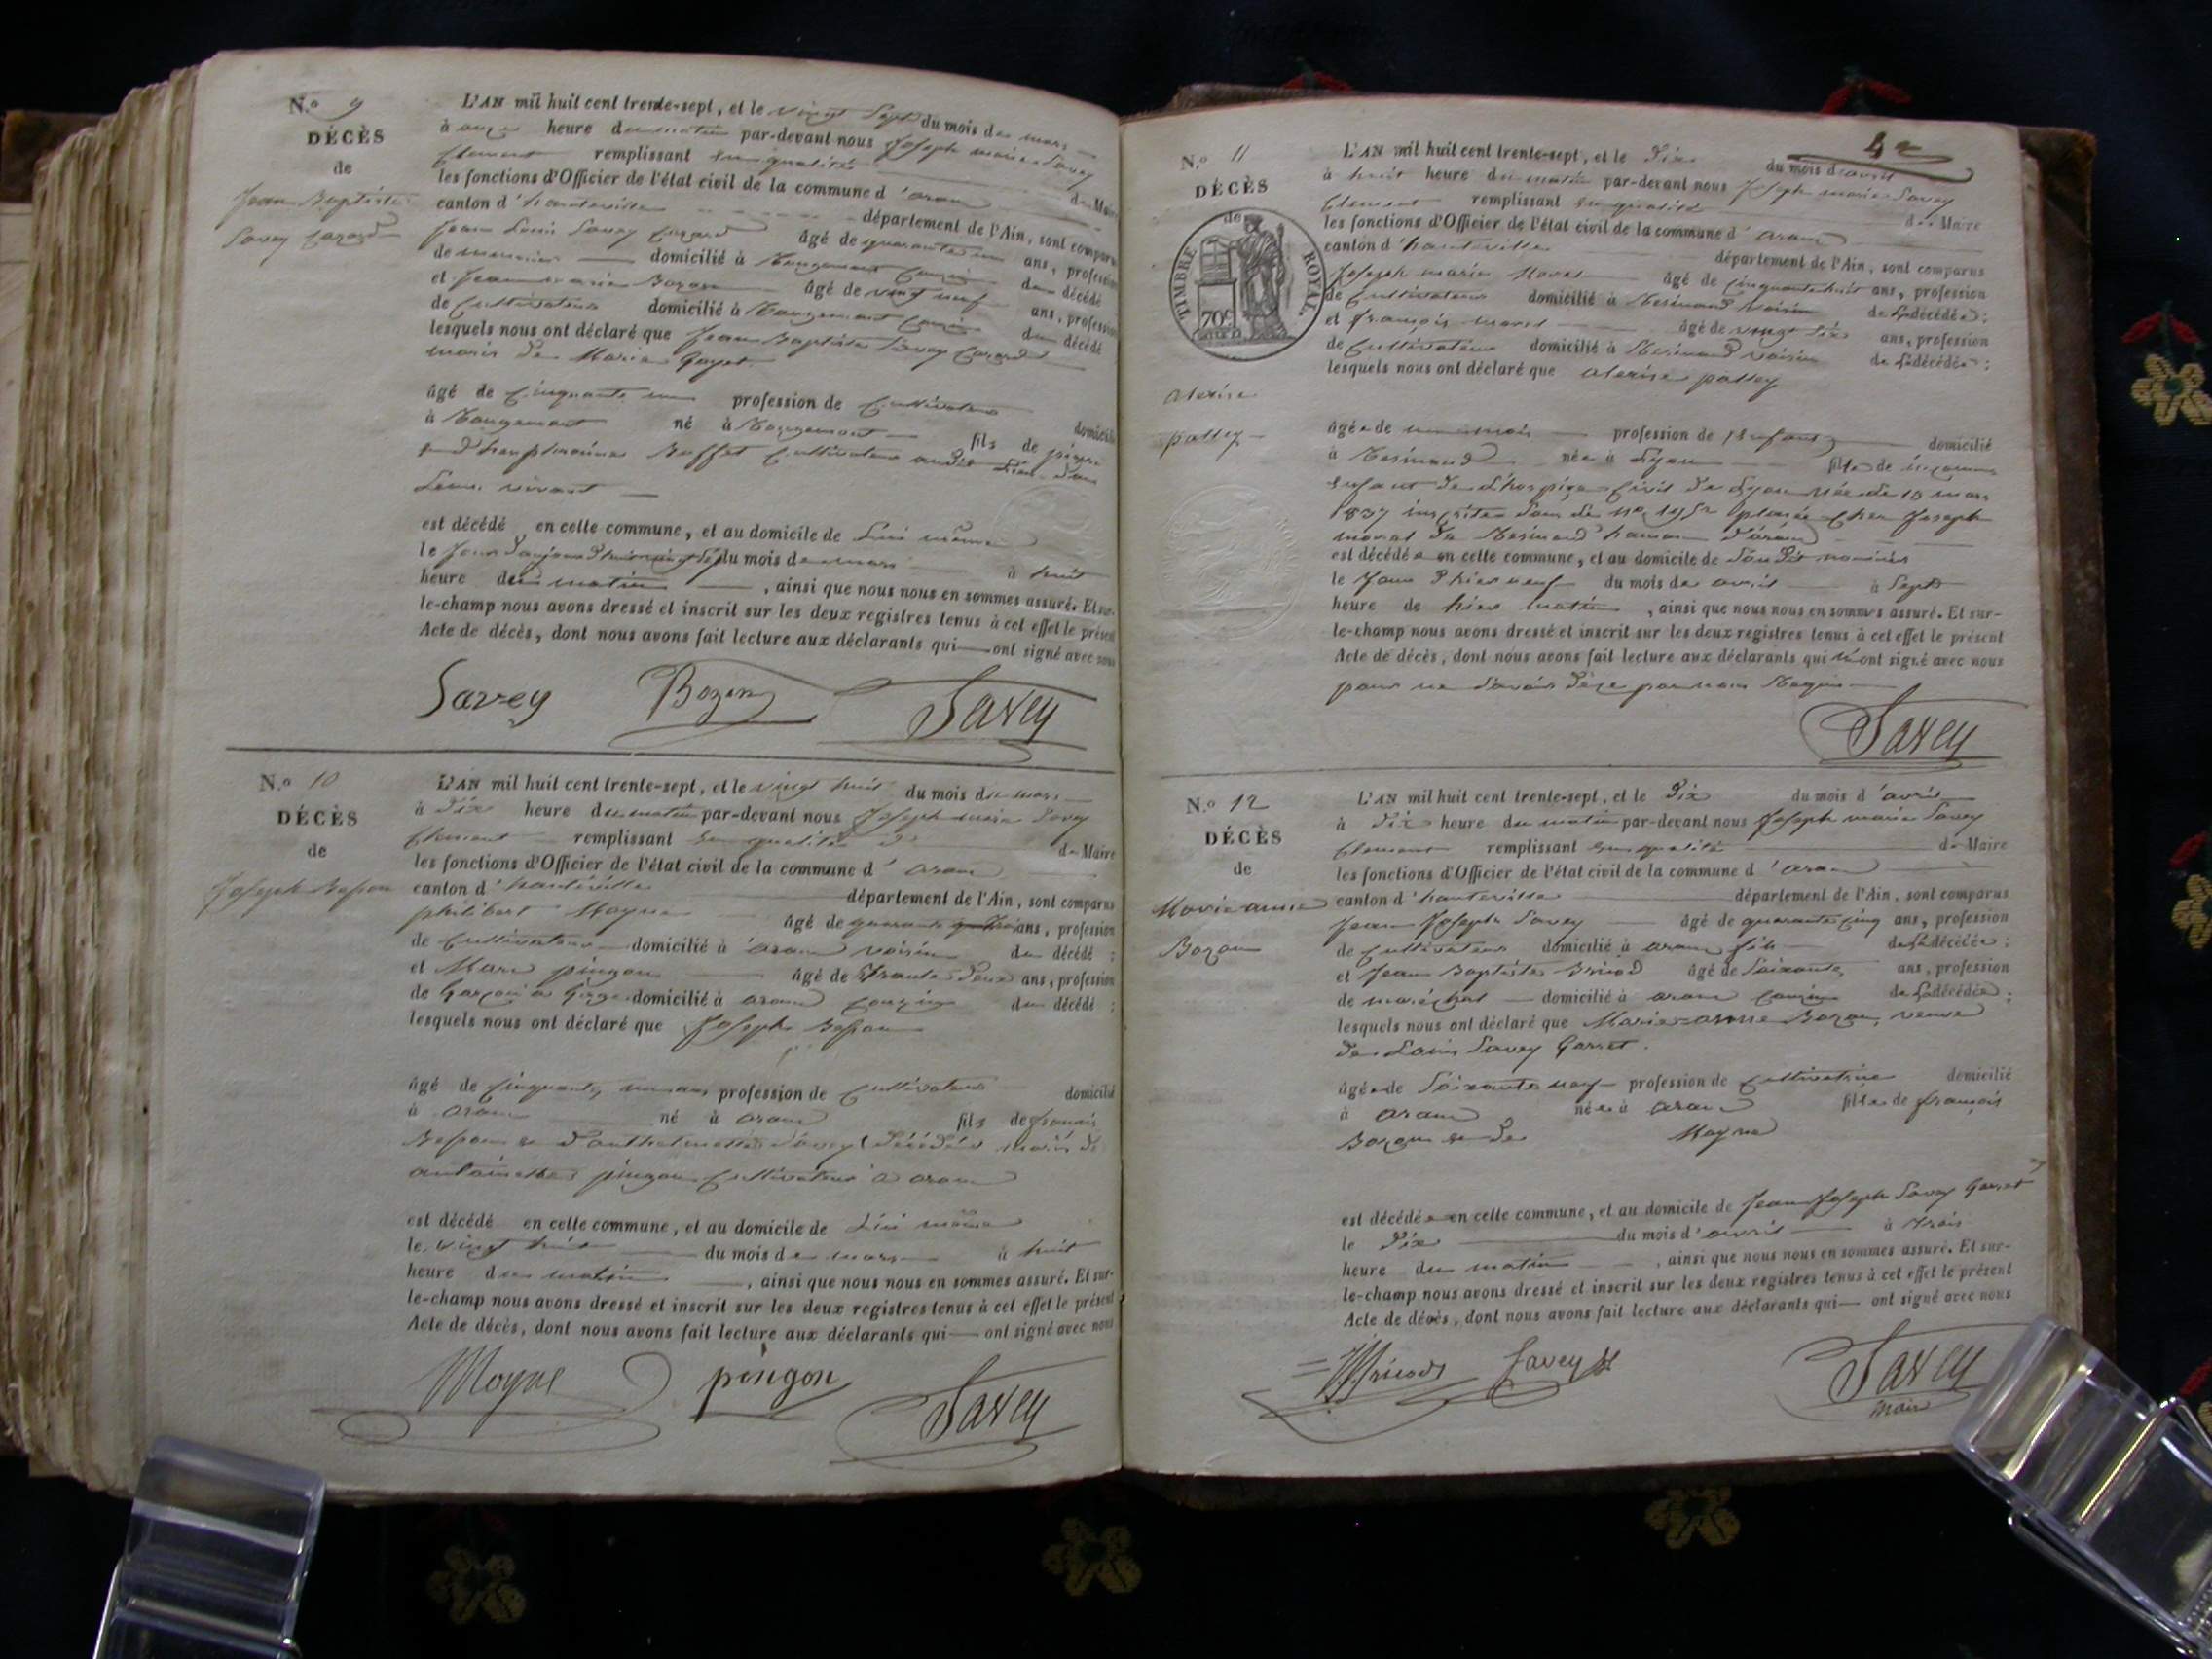 N.° 9
DÉCÈS
de
Jean Baptiste
Savey
L'AN mil huit cent trente-sept, et le vingt Sept du mois de mars
à onze heure du matin par-devant nous Joseph marie Savey
Clement remplissant en qualité de Maire
les fonctions d'Officier de l'état civil de la commune d'aranc
canton d'hauteville département de l'Ain, sont comparus
Jean Louis Savey âgé de quarante ans, profession
de domicilié à Rougemont Cousin du décédé
et Jean marie Bozon âgé de vingt neuf ans, profession
de Cultivateur domicilié à Rougemont Cousin du décédé
lesquels nous ont déclaré que Jean Baptiste Savey
maris de Marie Goyet
âgé de Cinquante un profession de Cultivateur domicilié
à Rougemont né à Rougemont fils de pierre
Buffet Cultivateur audit Lieu
Leur vivant
est décédé en cette commune, et au domicile de Lui même
le Jour d'aujourd'hui vingt Sept du mois de mars à huit
heure du matin, ainsi que nous nous en sommes assuré. Et sur-
le-champ nous avons dressé et inscrit sur les deux registres tenus à cet effet le présent
Acte de décès, dont nous avons fait lecture aux déclarants qui ont signé avec nous
Savey Bozon Savey
N.° 10
DÉCÈS
de
Joseph Besson
L'AN mil huit cent trente-sept, et le vingt huit du mois de mars
à Dix heure du matin par-devant nous Joseph marie Savey
Clement remplissant en qualité de Maire
les fonctions d'Officier de l'état civil de la commune d'aranc
canton d'hauteville département de l'Ain, sont comparus
philibert Moyne âgé de quarante ans, profession
de Cultivateur domicilié à aranc voisin du décédé ;
et Marc pingon âgé de trante Deux ans, profession
de domicilié à aranc Cousin du décédé ;
lesquels nous ont déclaré que Joseph Besson
âgé de Cinquante un ans profession de Cultivateur domicilié
à aranc né à aranc fils de francois
Besson et d'anthelmette Savey décédés maris de
antoinette pingon Cultivateur à aranc
est décédé en cette commune, et au domicile de Lui même
le vingt huit du mois de mars à huit
heure du matin, ainsi que nous nous en sommes assuré. Et sur-
le-champ nous avons dressé et inscrit sur les deux registres tenus à cet effet le présent
Acte de décès, dont nous avons fait lecture aux déclarants qui ont signé avec nous
Moyne pingon Savey
N.° 11
DÉCÈS
de
TIMBRE ROYAL.
70c
alexise
pattey
L'AN mil huit cent trente-sept, et le Dix du mois d'avril
à huit heure du matin par-devant nous Joseph marie Savey
Clement remplissant en qualité de Maire
les fonctions d'Officier de l'état civil de la commune d'aranc
canton d'hauteville département de l'Ain, sont comparus
Joseph marie Moret âgé de Cinquante huit ans, profession
de Cultivateur domicilié à Resinand voisin de la décédée ;
et françois moret âgé de vingt Six ans, profession
de Cultivateur domicilié à Resinand voisin de la décédée ;
lesquels nous ont déclaré que alexise pattey
âgée de un mois profession de Enfant domicilié
à Resinand née à Lyon fille de inconnu
Enfant de L'hospice Civil de Lyon née le 10 mars
1837 inscrite Sous Le N° placée chez Joseph
moret de Resinand hameau d'aranc
est décédée en cette commune, et au domicile de Sus Dit nommé
le Jour D'hier neuf du mois de avril à Sept
heure de hier matin, ainsi que nous nous en sommes assuré. Et sur-
le-champ nous avons dressé et inscrit sur les deux registres tenus à cet effet le présent
Acte de décès, dont nous avons fait lecture aux déclarants qui n'ont signé avec nous
pour ne Savoir
Savey
N.° 12
DÉCÈS
de
Marie anne
Bozon
L'AN mil huit cent trente-sept, et le Dix du mois d'avril
à Dix heure du matin par-devant nous Joseph marie Savey
Clement remplissant en qualité de Maire
les fonctions d'Officier de l'état civil de la commune d'aranc
canton d'hauteville département de l'Ain, sont comparus
Jean Joseph Savey âgé de quarante Cinq ans, profession
de Cultivateur domicilié à aranc fils de la décédée ;
et Jean Baptiste Bricod âgé de Soixante ans, profession
de maréchal domicilié à aranc Cousin de la décédée ;
lesquels nous ont déclaré que Marie anne Bozon, veuve
de Louis Savey Garret.
âgée de Soixante neuf profession de Cultivatrice domicilié
à aranc née à aranc fille de françois
Bozon et de Moyne
est décédée en cette commune, et au domicile de Jean Joseph Savey Garret
le Dix du mois d'avril à trois
heure du matin, ainsi que nous nous en sommes assuré. Et sur-
le-champ nous avons dressé et inscrit sur les deux registres tenus à cet effet le présent
Acte de décès, dont nous avons fait lecture aux déclarants qui ont signé avec nous
Savey Savey
Maire